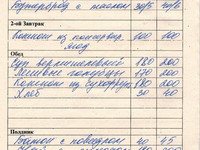 Бутерброд с маслом 30/5 40/6
2-ой Завтрак
Компот из консервир. 100 100
ягод
Обед
Суп вермишелевый 180 200
Ленивые голубцы 170 200
Компот из сухофрук 180 200
Хлеб 30 40
Полдник
с повидлом 40 45
200